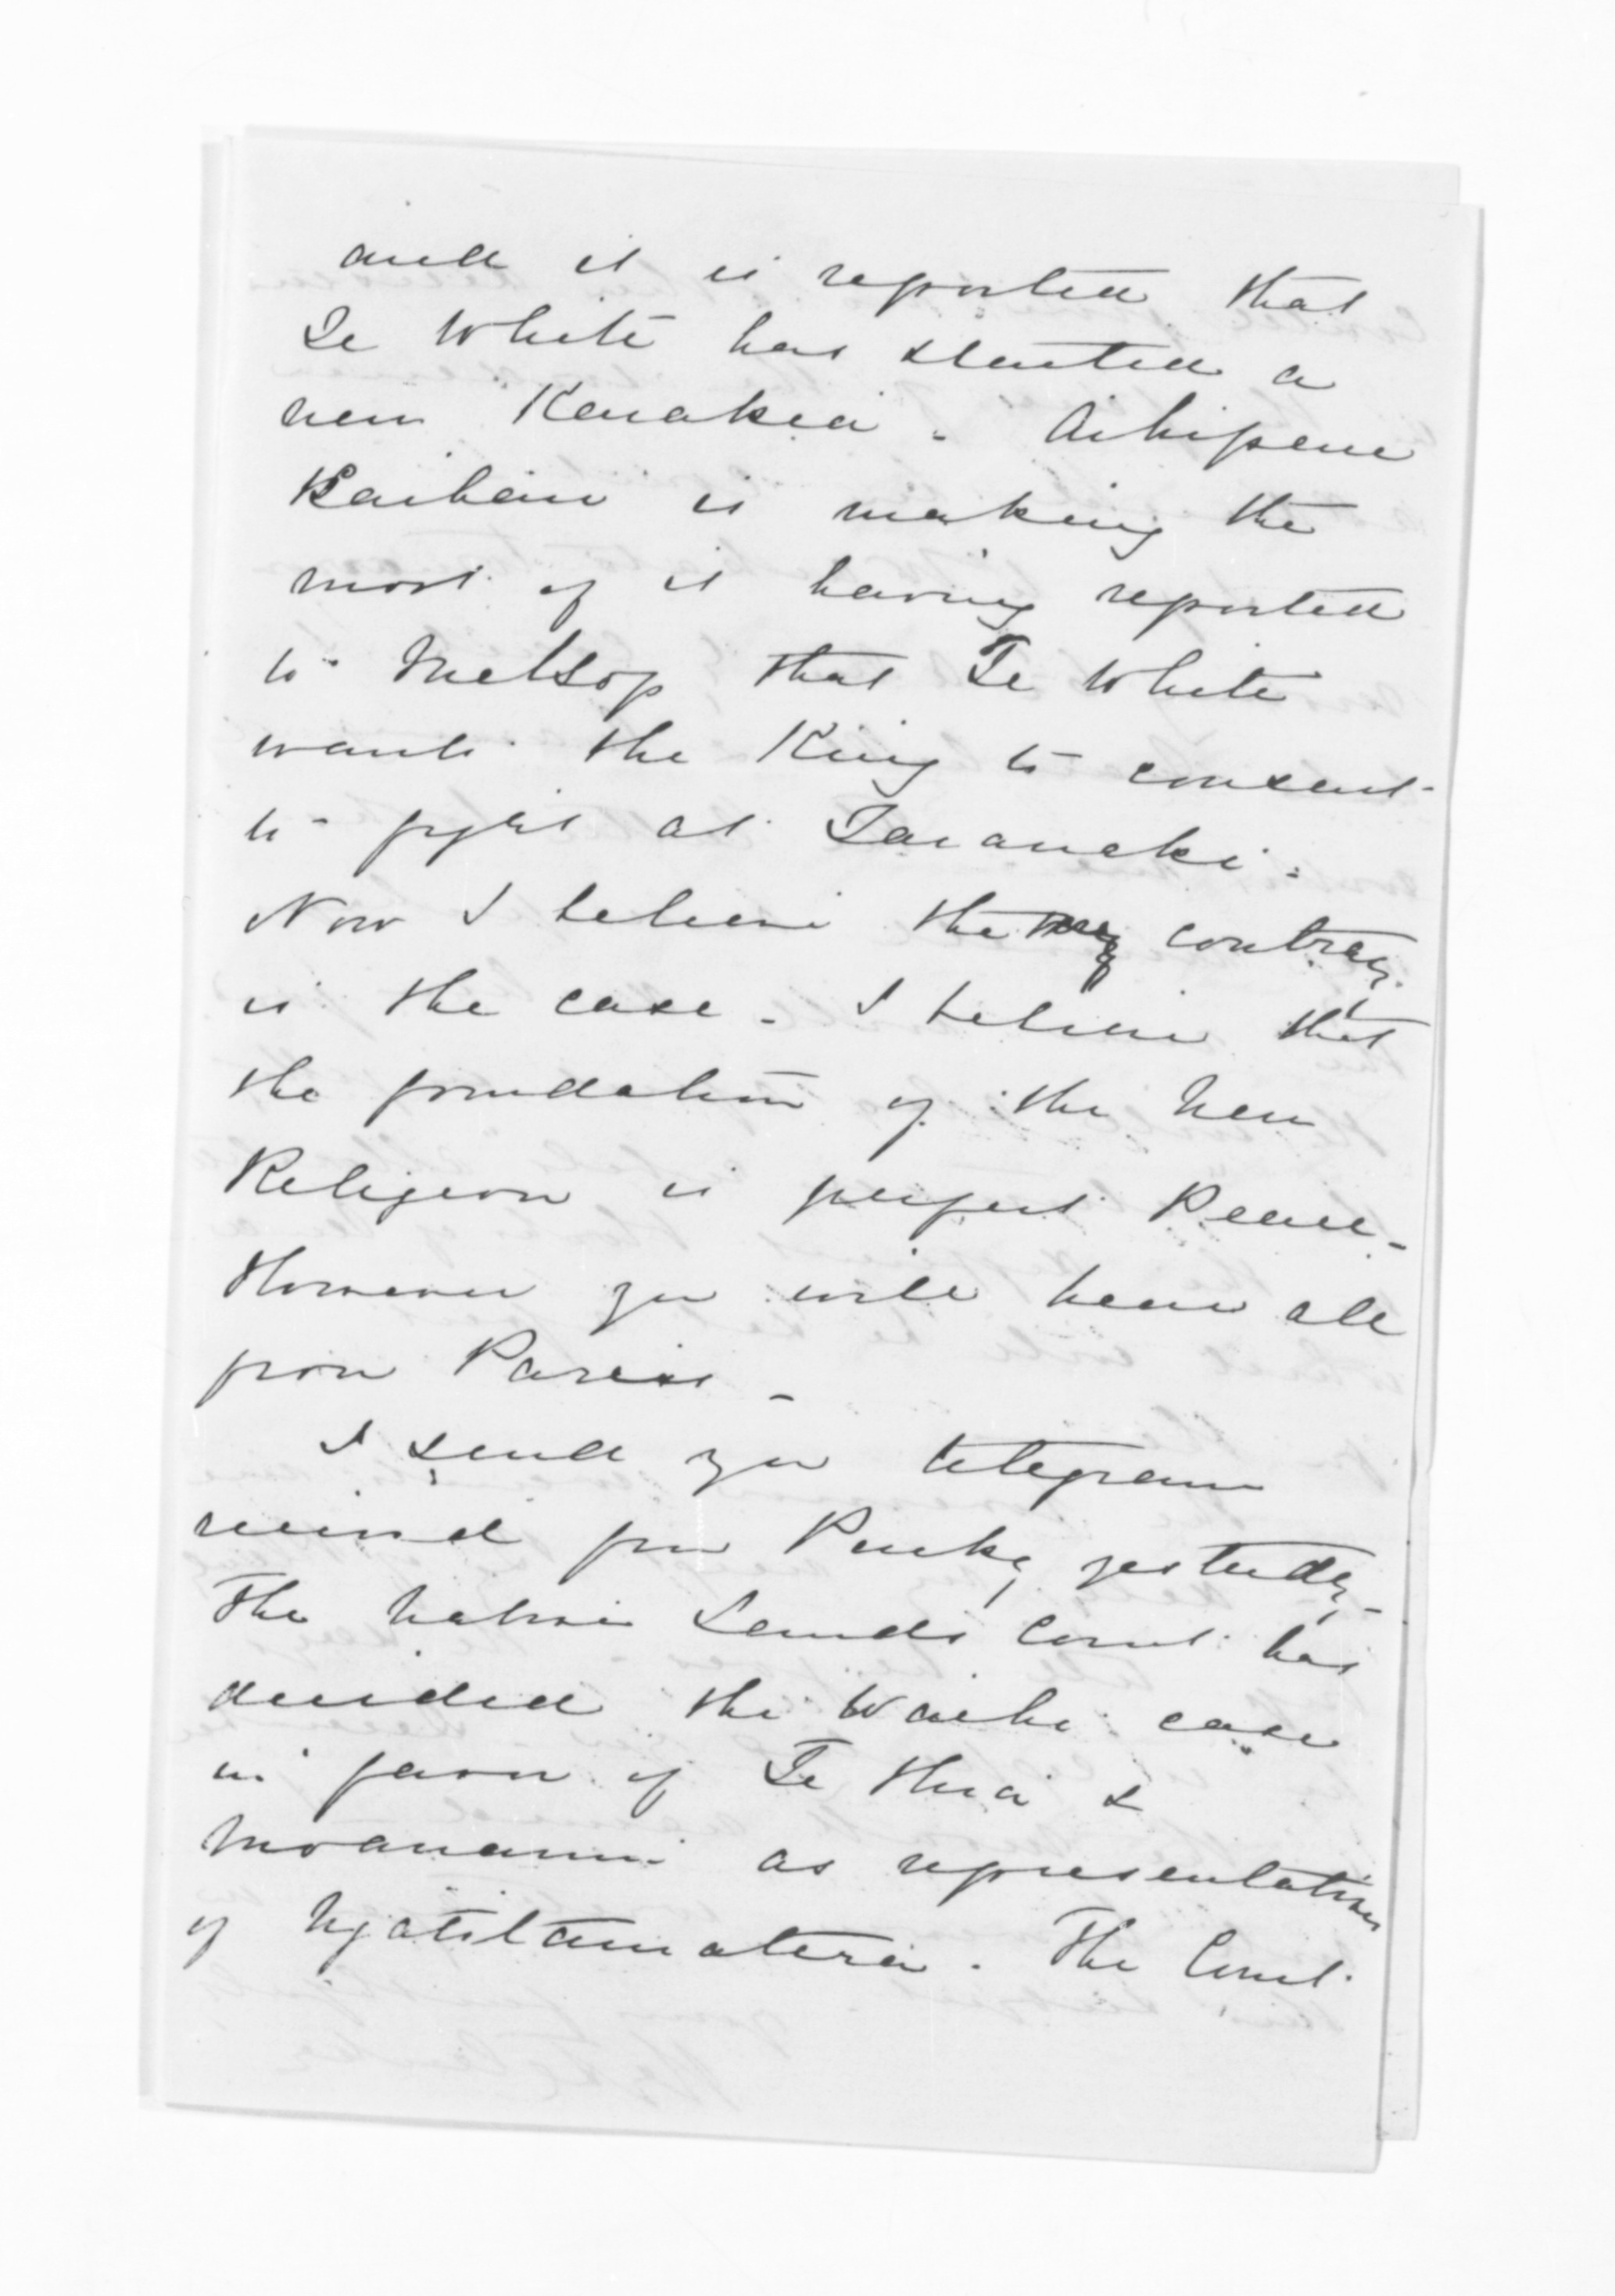 and it is reported that
Te White has started a
new Karakia. Aihipene
Kaihau is making the
most of it having reported
to Mellsop that Te White
wants the King to consent
to fight at Taranaki.
Now I believe the very contrary
is the case. I believe that
the foundation of the new
Religion is perfect Peace.
However you will hear all
from Parris.
I send you telegram
received from Puckey yesterday.
The Native Lands Court has
decided the Waihi case
in favor of Te Hira &
Moananui as representatives
of Ngatitamatera. The Court